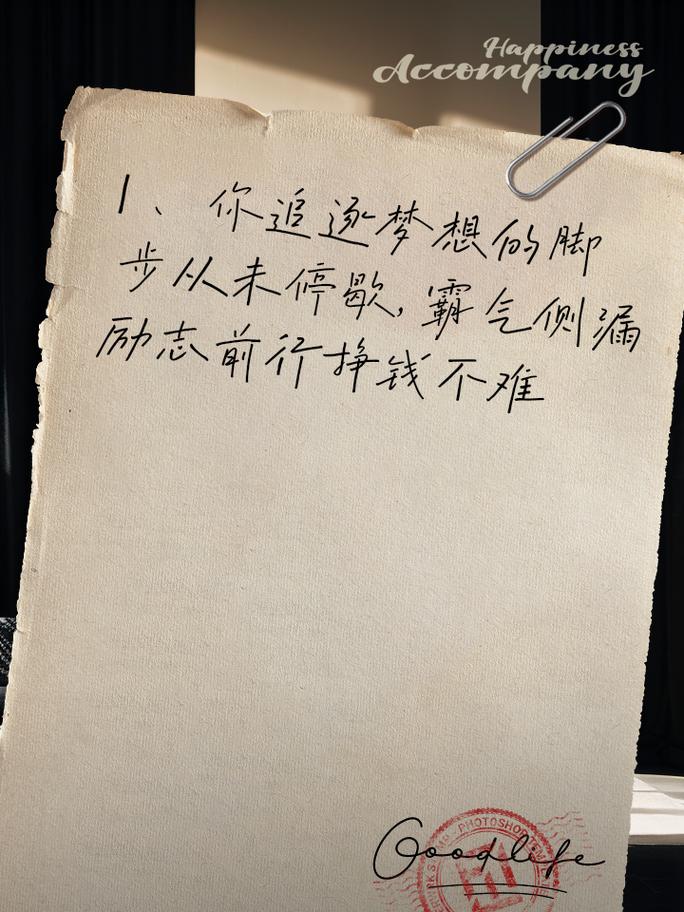 Happiness
Accompany
1、你追逐梦想的脚
步从未停歇,霸气侧漏
励志前行挣钱不难
PHOTOSHOP
Goodlife